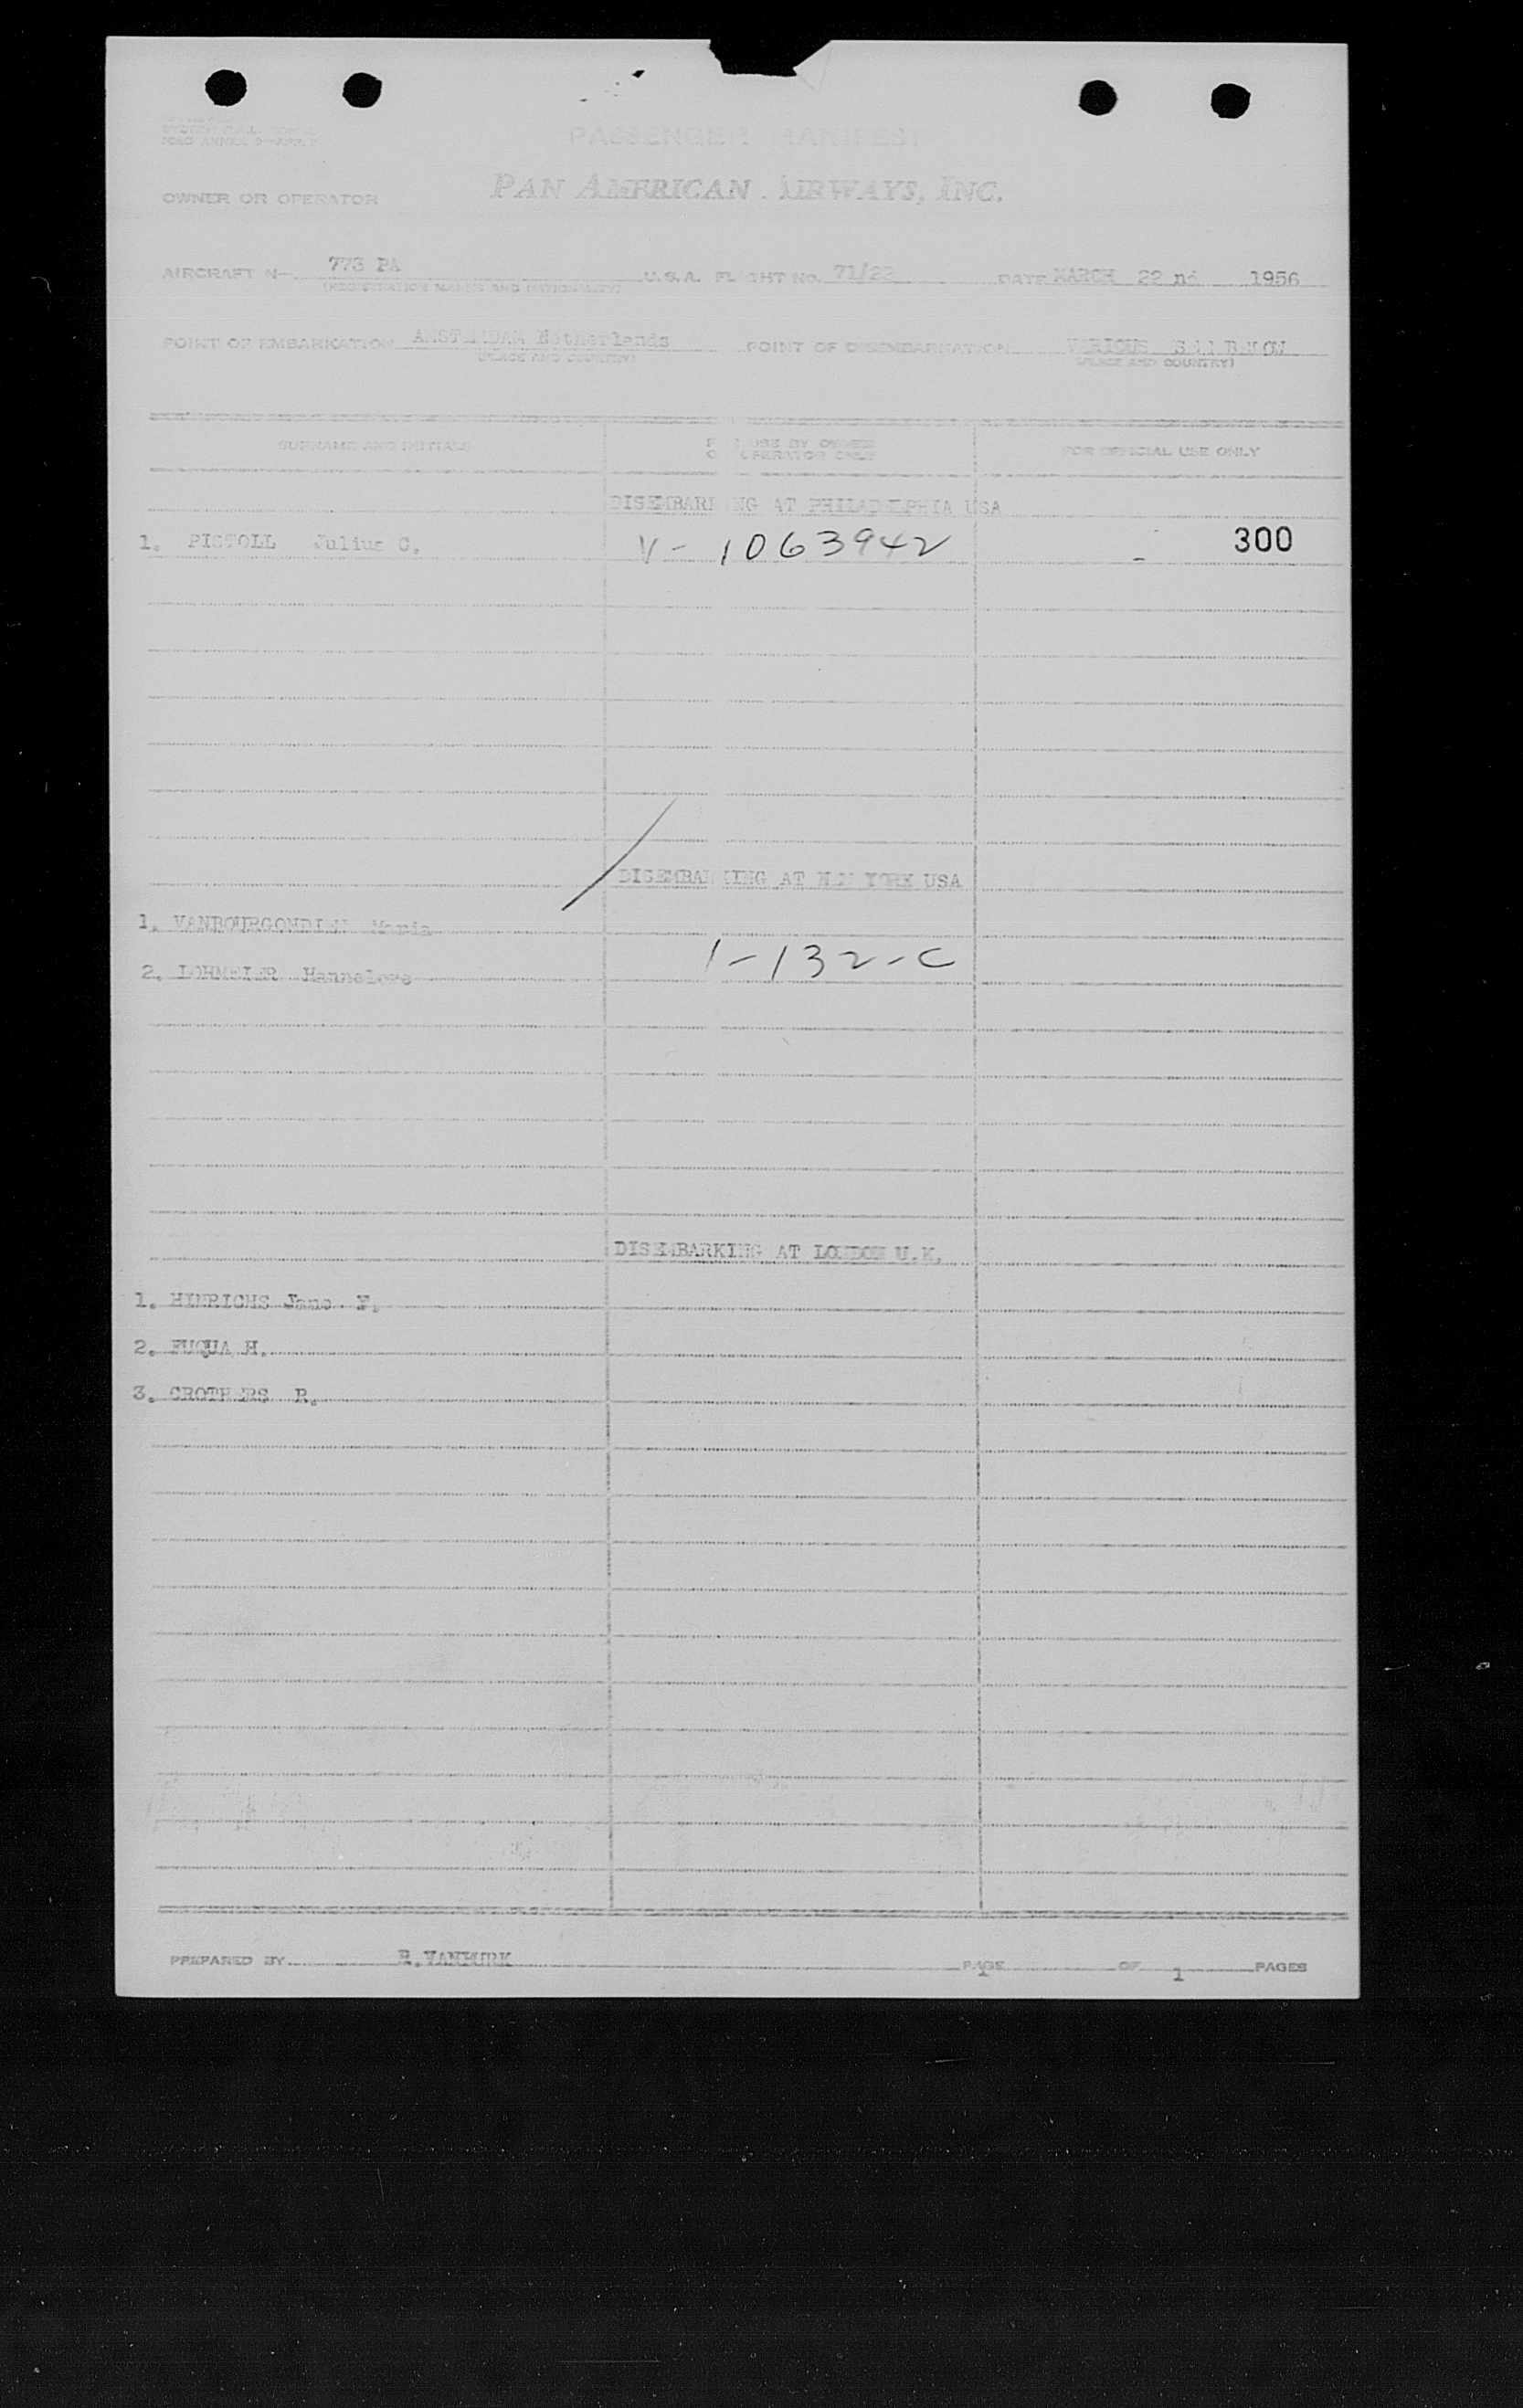 PASSENGER MANIFEST
OWNER OR OPERATOR PAN AMERICAN AIRWAYS, INC.
AIRCRAFT N-. 773 PA U.S.A. FLIGHT No. 71/22 DATE MARCH 22 nd 1956
(REGISTRATION MARKS AND NATIONALITY)
POINT OF EMBARKATION AMSTERDAM Netherlands POINT OF DISEMBARKATION VARIOUS SEE BELOW
(PLACE AND COUNTRY) (PLACE AND COUNTRY)
SURNAME AND INITIALS FOR USE BY OWNER OR OPERATOR ONLY FOR OFFICIAL USE ONLY
DISEMBARKING AT PHILADELPHIA USA
1. PISTOLL Julius C. V - 1063942 300
DISEMBARKING AT NEW YORK USA
1. VANBOURGONDIEN Maria
2. LOHMEIER Hannelore 1-132-C
DISEMBARKING AT LONDON U.K.
1. HINRICHS Jane F.
2. FUQUA H.
3. CROTHERS R.
PREPARED BY R.VANMURK PAGE 1 OF 1 PAGES